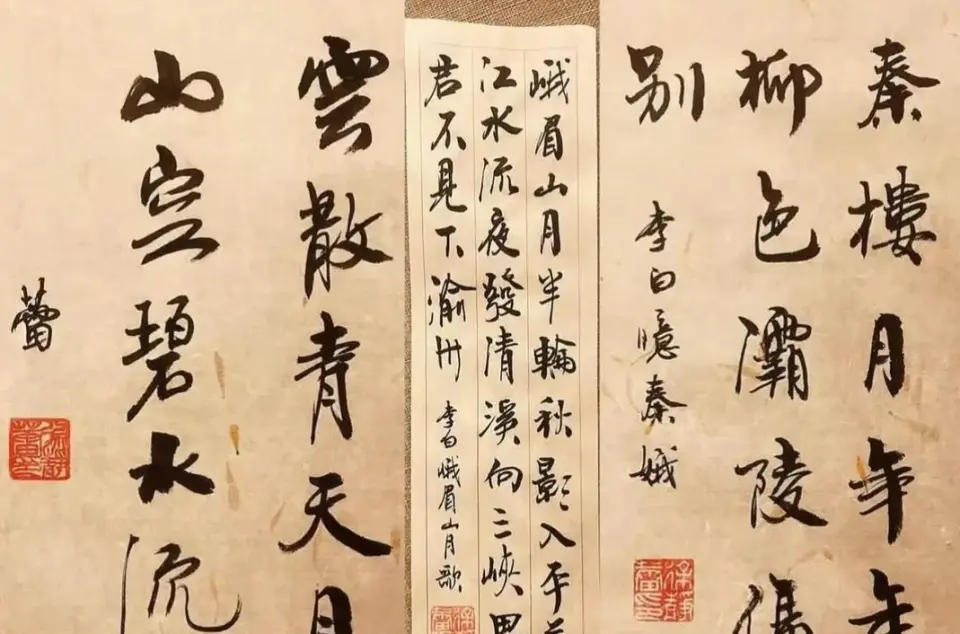 秦樓月年年
柳色灞陵傷
別
李白憶秦娥
峨眉山月半輪秋影入平羌
江水流夜發清溪向三峽思
君不見下渝州
李白峨眉山月歌
雲散青天月
山空碧水流
蕾